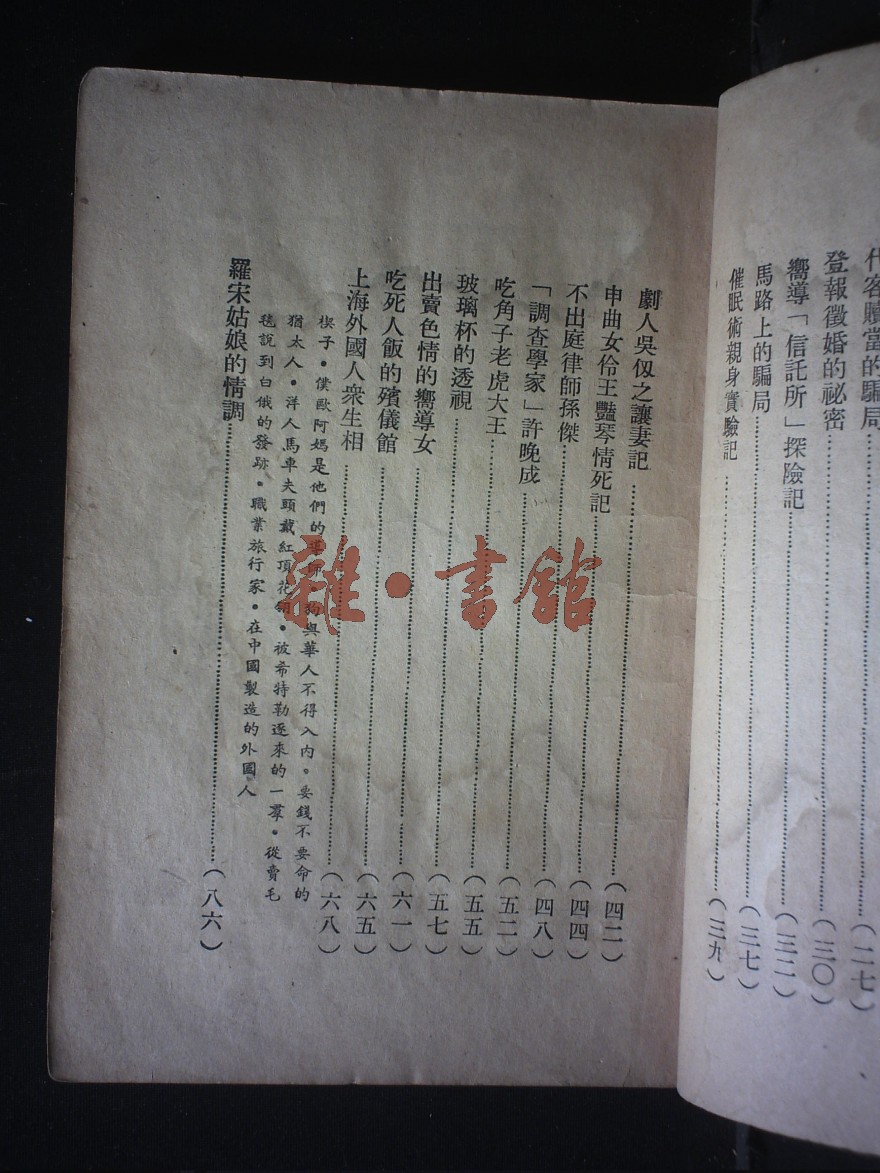 代客贖當的騙局……(二七)
登報徵婚的祕密……(三〇)
嚮導「信託所」探險記……(三二)
馬路上的騙局……(三七)
催眠術親身實驗記……(三九)
劇人吳仭之讓妻記……(四二)
申曲女伶王豔琴情死記……(四四)
不出庭律師孫傑……(四八)
「調查學家」許晚成……(五二)
吃角子老虎大王……(五五)
玻璃杯的透視……(五七)
出賣色情的嚮導女……(六一)
吃死人飯的殯儀館……(六五)
上海外國人衆生相……(六八)
楔子•僕歐阿媽是他們的導師•狗與華人不得入內•要錢不要命的
猶太人•洋人馬車夫頭戴紅頂花翎•被希特勒逐來的一羣•從賣毛
毯說到白俄的發跡•職業旅行家•在中國製造的外國人
羅宋姑娘的情調……(八六)
雜·書館